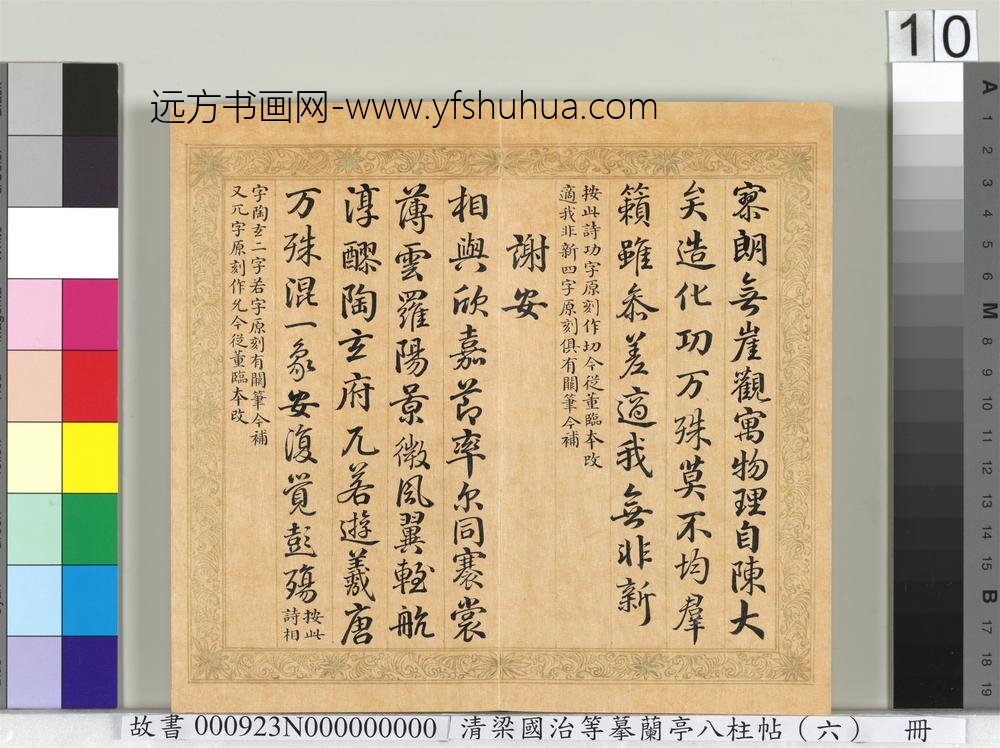 远方书画网-www.yfshuhua.com
10
寮朗無崖觀寓物理自陳大
矣造化功万殊莫不均羣
籟雖叅差適我無非新
按此詩功字原刻作切今從董臨本改
適我非新四字原刻俱有闕筆今補
謝安
相與欣嘉莭率尔同褰裳
薄雲羅陽景微風翼輊航
淳醪陶玄府兀若遊羲唐
万殊混一象安復覺彭殤
按此
詩相
字陶玄二字若字原刻有闕筆今補
又兀字原刻作允今從董臨本改
A 1 2 3 4 5 6 M 8 9 10 11 12 13 14 15 B 17 18 19
故書 000923N000000000 清梁國治等摹蘭亭八柱帖（六） 冊